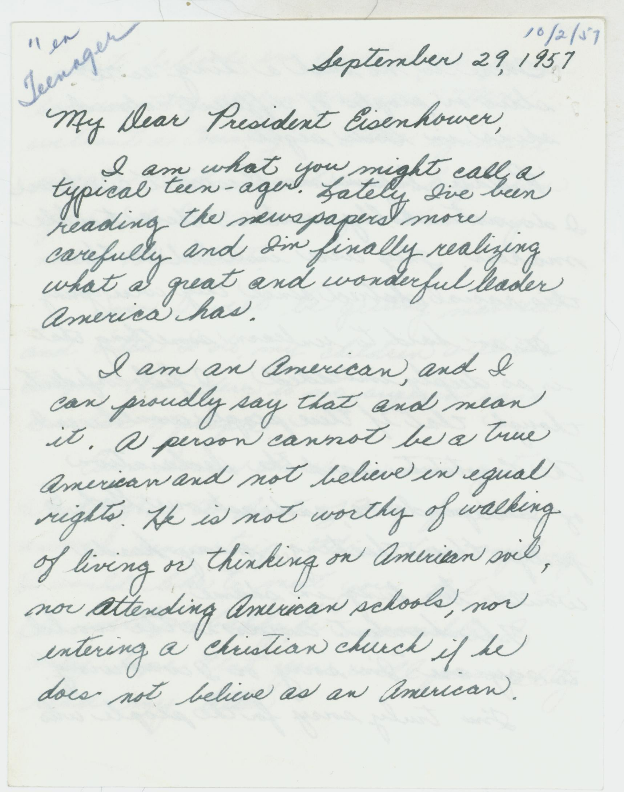 " en
Teenager
10/2/57
September 29, 1957
My Dear President Eisenhower,
I am what you might call a
typical teen-ager. Lately I've been
reading the newspapers more
carefully and I'm finally realizing
what a great and wonderful leader
America has.
I am an American, and I
can proudly say that and mean
it. A person cannot be a true
American and not believe in equal
rights. He is not worthy of walking
of living or thinking on American soil,
nor attending American schools, nor
entering a christian church if he
does not believe as an American.